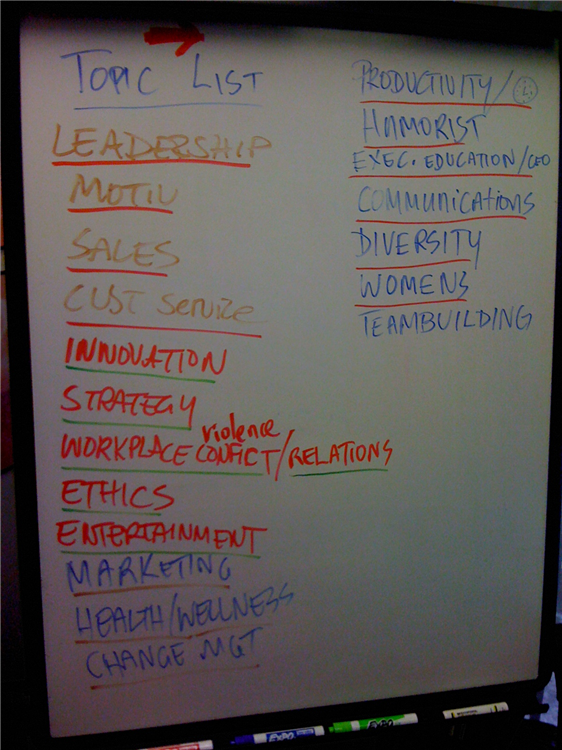 TOPIC LIST
LEADERSHIP
MOTIV
SALES
CUST SERVICE
INNOVATION
STRATEGY
violence
WORKPLACE CONFICT/RELATIONS
ETHICS
ENTERTAINMENT
MARKETING
HEALTH/WELLNESS
CHANGE MGT
PRODUCTIVITY/
HUMORIST
EXEC. EDUCATION/CEO
COMMUNICATIONS
DIVERSITY
WOMENS
TEAMBUILDING
EXPO
EXPO